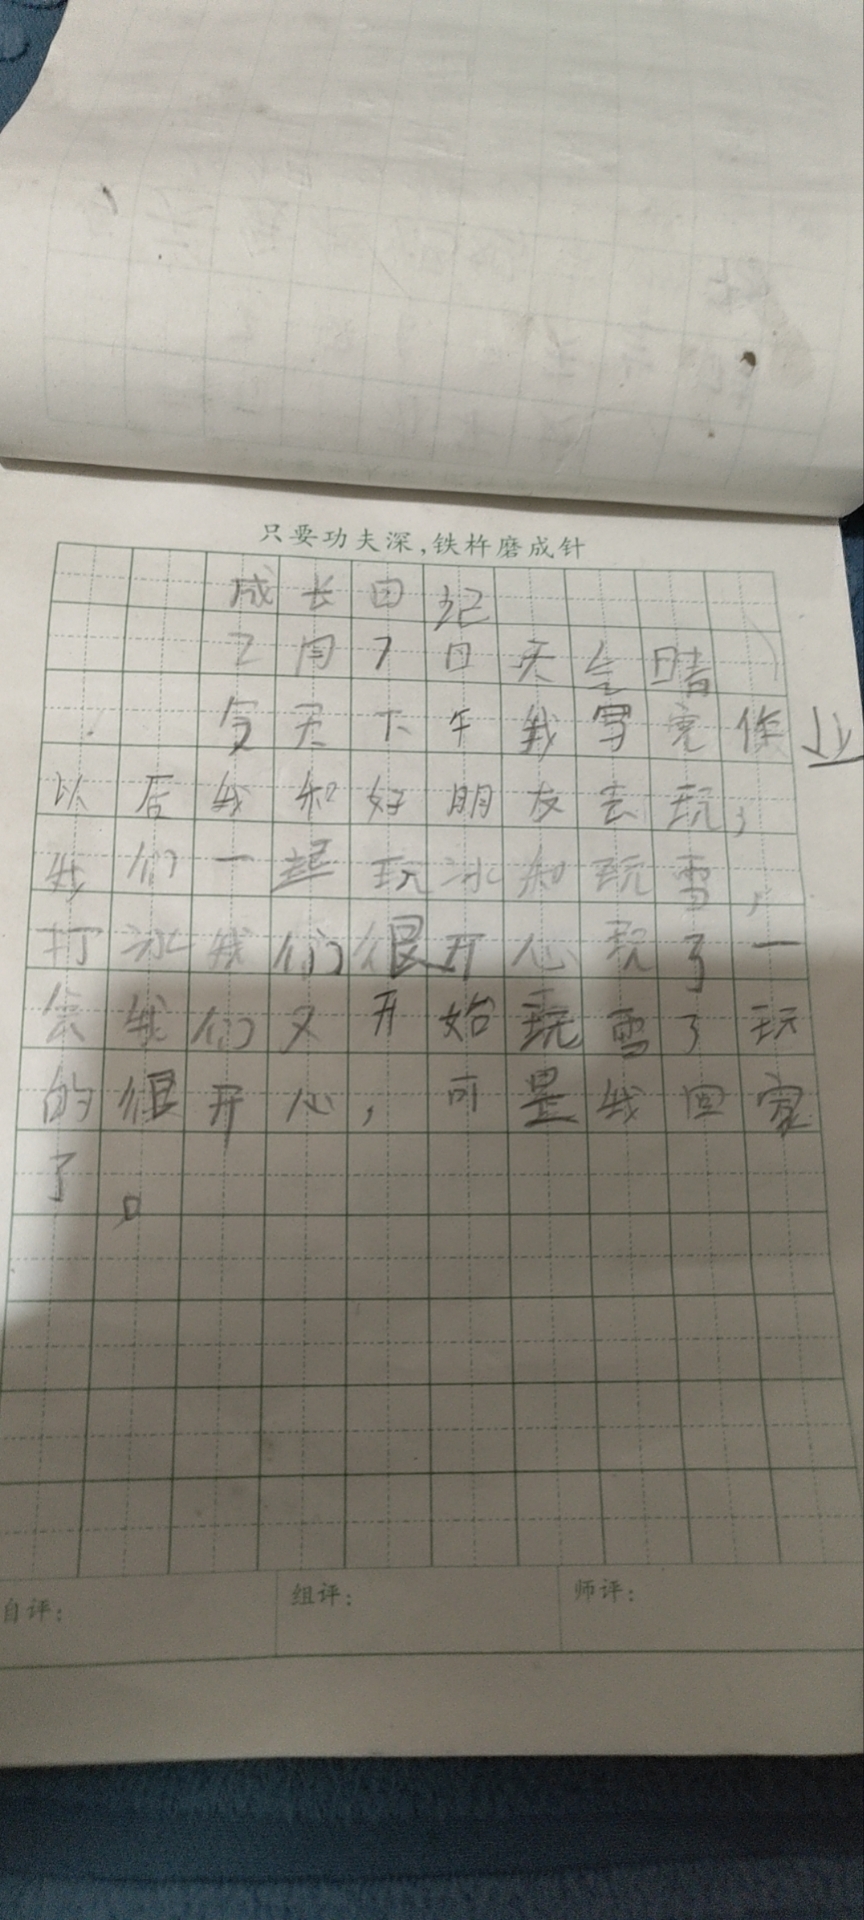 只要功夫深,铁杵磨成针
成长日记
2月7日天气晴
今天下午我写完作业
以后我和好朋友去玩,
我们一起玩冰和玩雪,
打冰我们很开心玩了一
会我们又开始玩雪了玩
的很开心,可是我回家
了。
自评:
组评:
师评: